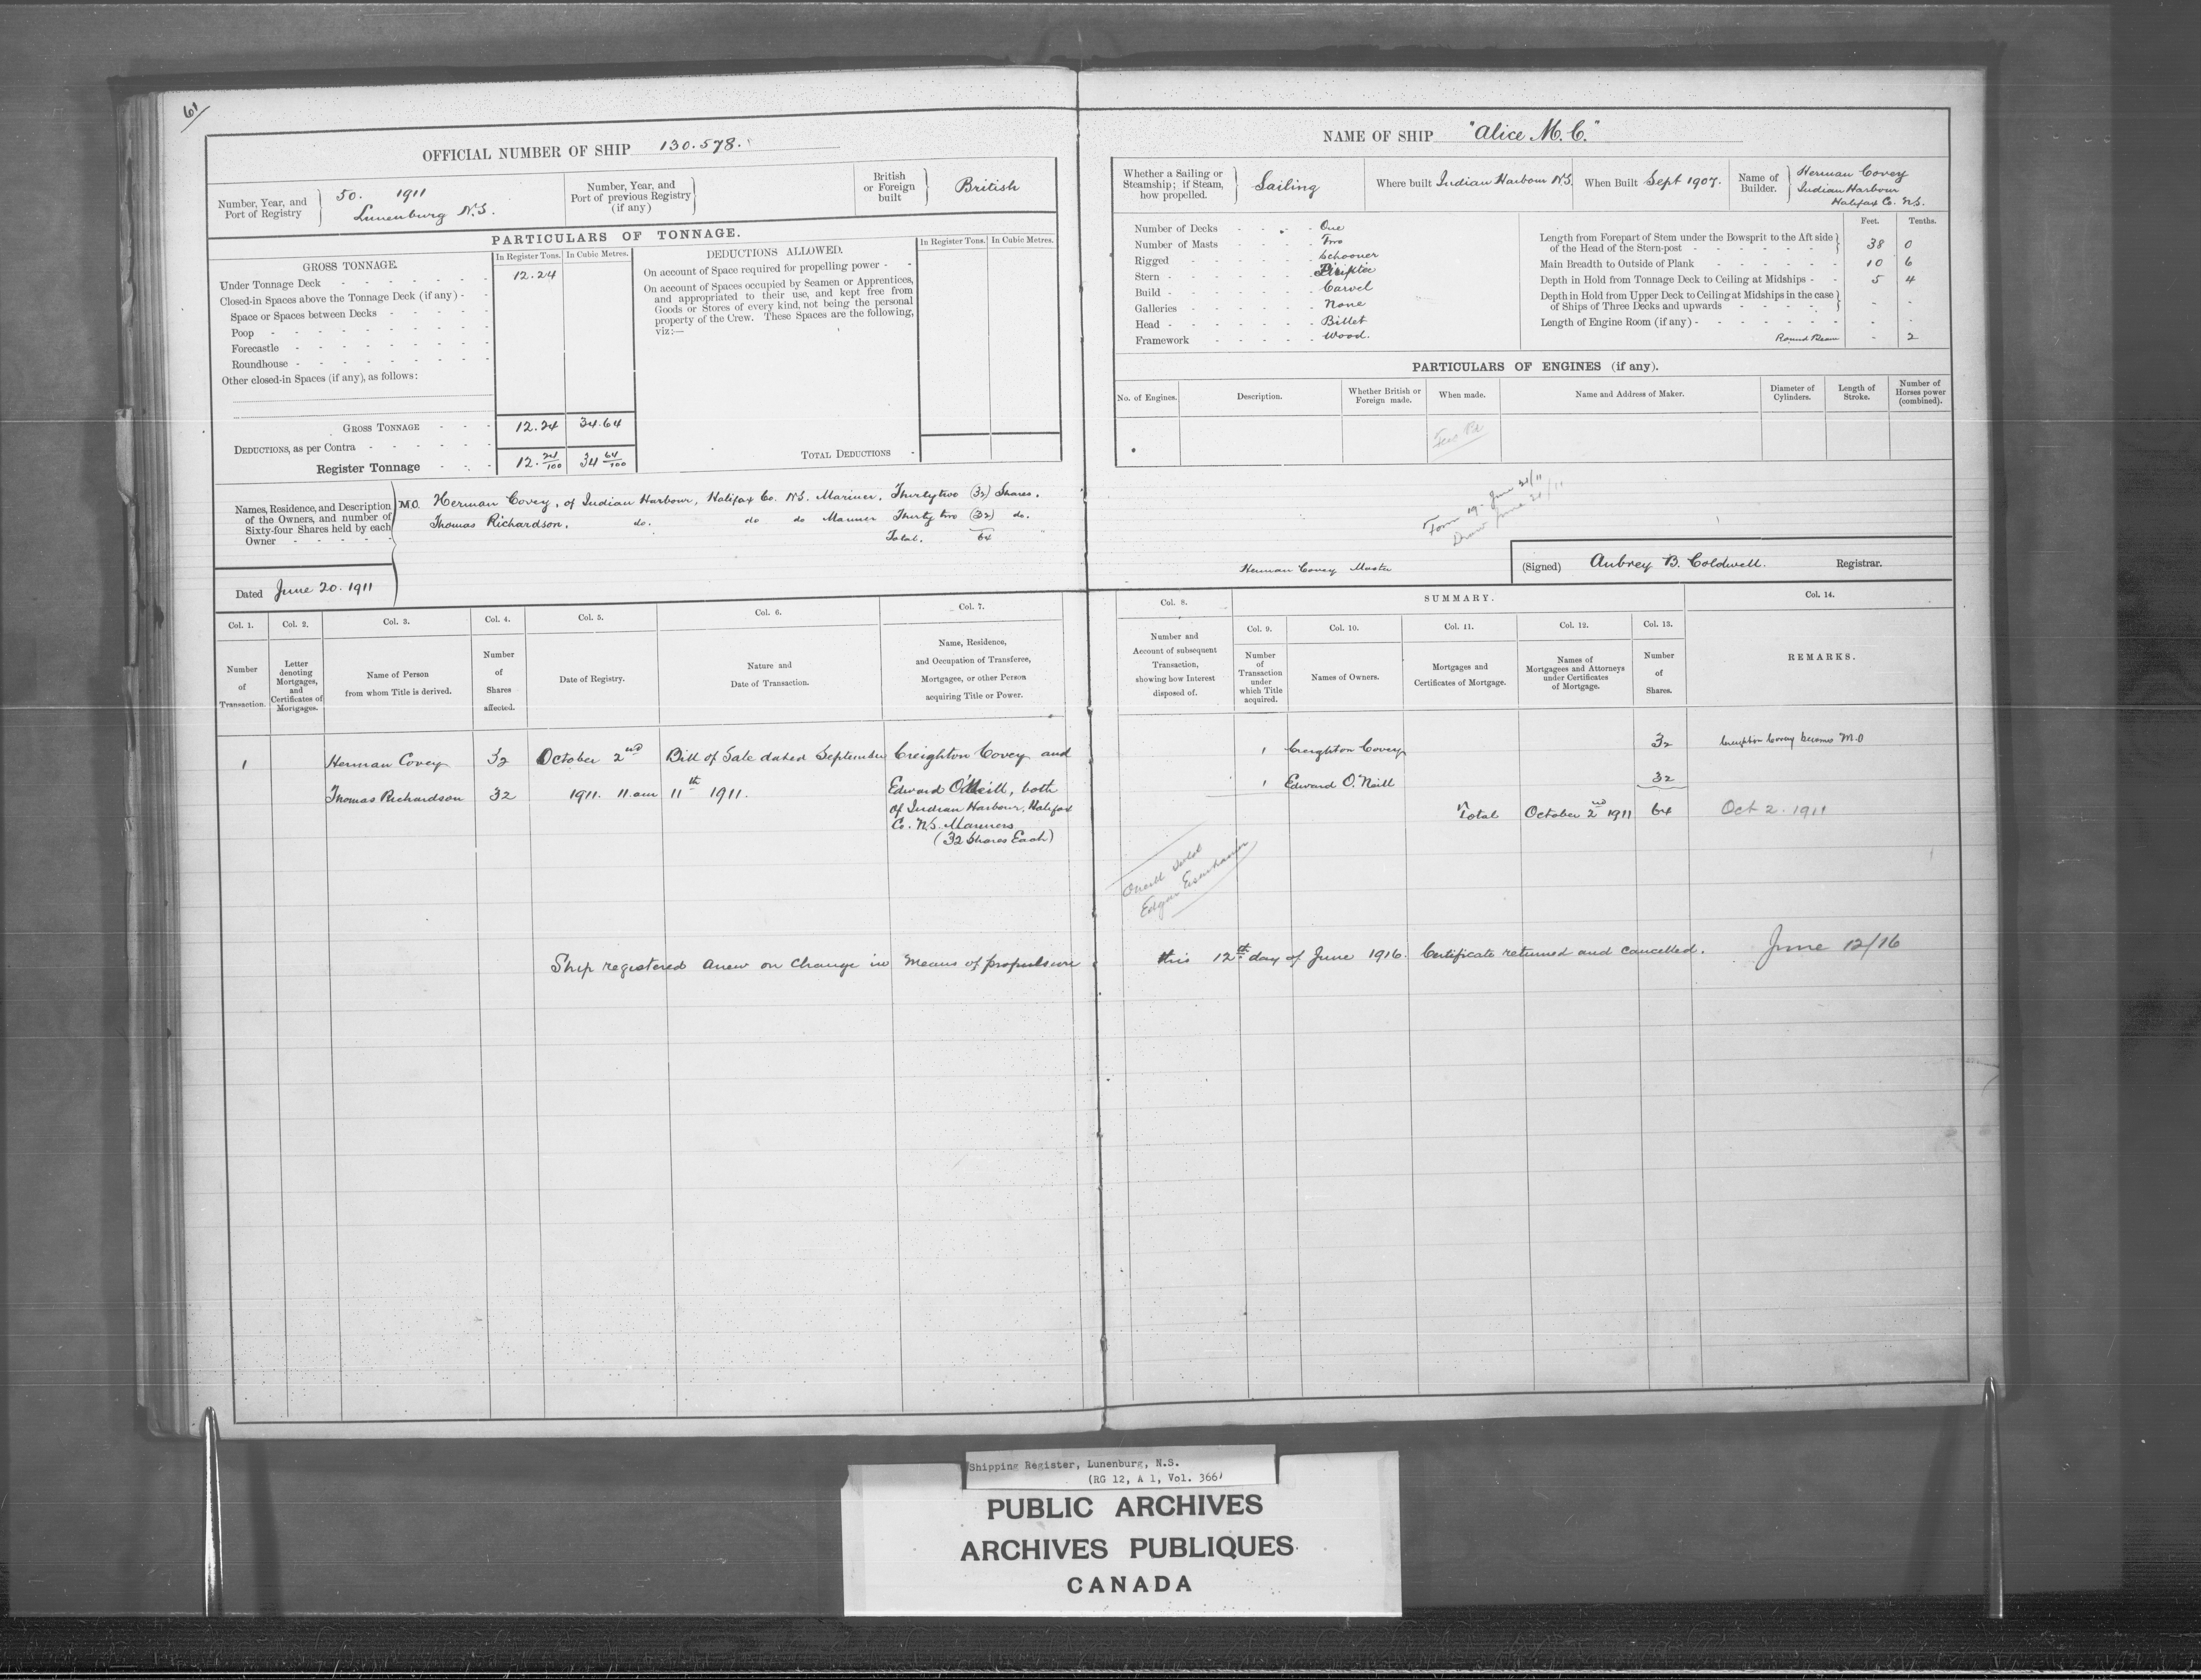 61
OFFICIAL NUMBER OF SHIP 130.578.
Number, Year, and Port of Registry } 50. 1911 Lunenburg N.S.
Number, Year, and Port of previous Registry (if any) }
British or Foreign built } British
PARTICULARS OF TONNAGE.
GROSS TONNAGE. In Register Tons. In Cubic Metres.
Under Tonnage Deck - - - 12.24
Closed-in Spaces above the Tonnage Deck (if any) - -
Space or Spaces between Decks - - -
Poop - - -
Forecastle - - -
Roundhouse - - -
Other closed-in Spaces (if any), as follows:
GROSS TONNAGE - - - 12.24 34.64
DEDUCTIONS, as per Contra - - -
Register Tonnage - - - 12.24/100 34 64/100
DEDUCTIONS ALLOWED. In Register Tons. In Cubic Metres.
On account of Space required for propelling power - -
On account of Spaces occupied by Seamen or Apprentices,
and appropriated to their use, and kept free from
Goods or Stores of every kind, not being the personal
property of the Crew. These Spaces are the following,
viz:—
TOTAL DEDUCTIONS -
Names, Residence, and Description
of the Owners, and number of
Sixty-four Shares held by each
Owner - - - - -
M.O. Herman Covey, of Indian Harbour, Halifax Co. N.S. Mariner, Thirty two (32) Shares.
Thomas Richardson, do. do do Mariner Thirty two (32) do.
Total. 64 "
Dated June 20. 1911
NAME OF SHIP "Alice M. C."
Whether a Sailing or Steamship; if Steam, how propelled. } Sailing
Where built Indian Harbour N.S.
When Built Sept 1907.
Name of Builder. } Herman Covey
Indian Harbour
Halifax Co. N.S.
Number of Decks - - - One
Number of Masts - - - Two
Rigged - - - Schooner
Stern - - -
Build - - - Carvel
Galleries - - - None
Head - - - Billet
Framework - - - Wood.
Feet. Tenths.
Length from Forepart of Stem under the Bowsprit to the Aft side
of the Head of the Stern-post - - - 38 0
Main Breadth to Outside of Plank - - - 10 6
Depth in Hold from Tonnage Deck to Ceiling at Midships - - 5 4
Depth in Hold from Upper Deck to Ceiling at Midships in the case
of Ships of Three Decks and upwards - - - - -
Length of Engine Room (if any) - - - - -
Round Beam - 2
PARTICULARS OF ENGINES (if any).
No. of Engines. Description. Whether British or Foreign made. When made. Name and Address of Maker. Diameter of Cylinders. Length of Stroke. Number of Horses power (combined).
Fees Pd
Form 19. June 21/11
June 21/11
Herman Covey Master
(Signed) Aubrey B. Coldwell. Registrar.
Col. 1. Col. 2. Col. 3. Col. 4. Col. 5. Col. 6. Col. 7.
Number of Transaction.
Letter denoting Mortgages, and Certificates of Mortgages.
Name of Person from whom Title is derived.
Number of Shares affected.
Date of Registry.
Nature and Date of Transaction.
Name, Residence, and Occupation of Transferee, Mortgagee, or other Person acquiring Title or Power.
Col. 8. SUMMARY. Col. 14.
Col. 9. Col. 10. Col. 11. Col. 12. Col. 13.
Number and Account of subsequent Transaction, showing how Interest disposed of.
Number of Transaction under which Title acquired.
Names of Owners.
Mortgages and Certificates of Mortgage.
Names of Mortgagees and Attorneys under Certificates of Mortgage.
Number of Shares.
REMARKS.
1 Herman Covey 32 October 2nd Bill of Sale dated September Creighton Covey and
Thomas Richardson 32 1911. 11. am 11th 1911. Edward O'Neill, both
of Indian Harbour, Halifax
Co. N.S. Mariners
(32 Shares Each)
1 Creighton Covey 32 Creighton Covey becomes M.O
1 Edward O'Neill 32
Total October 2nd 1911 64 Oct 2. 1911
Oneill sold
Edgar Eisenhauer
Ship registered anew on Change in Means of propulsion this 12th day of June 1916. Certificate returned and cancelled. June 12/16
Shipping Register, Lunenburg, N.S.
(RG 12, A 1, Vol. 366)
PUBLIC ARCHIVES
ARCHIVES PUBLIQUES
CANADA